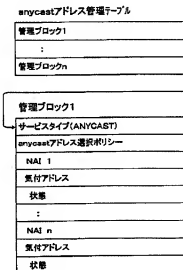 anycastアドレス管理テーブル
管理ブロック1
:
管理ブロックn
管理ブロック1
サービスタイプ(ANYCAST)
anycastアドレス選択ポリシー
NAI 1
気付アドレス
状態
:
NAI n
気付アドレス
状態